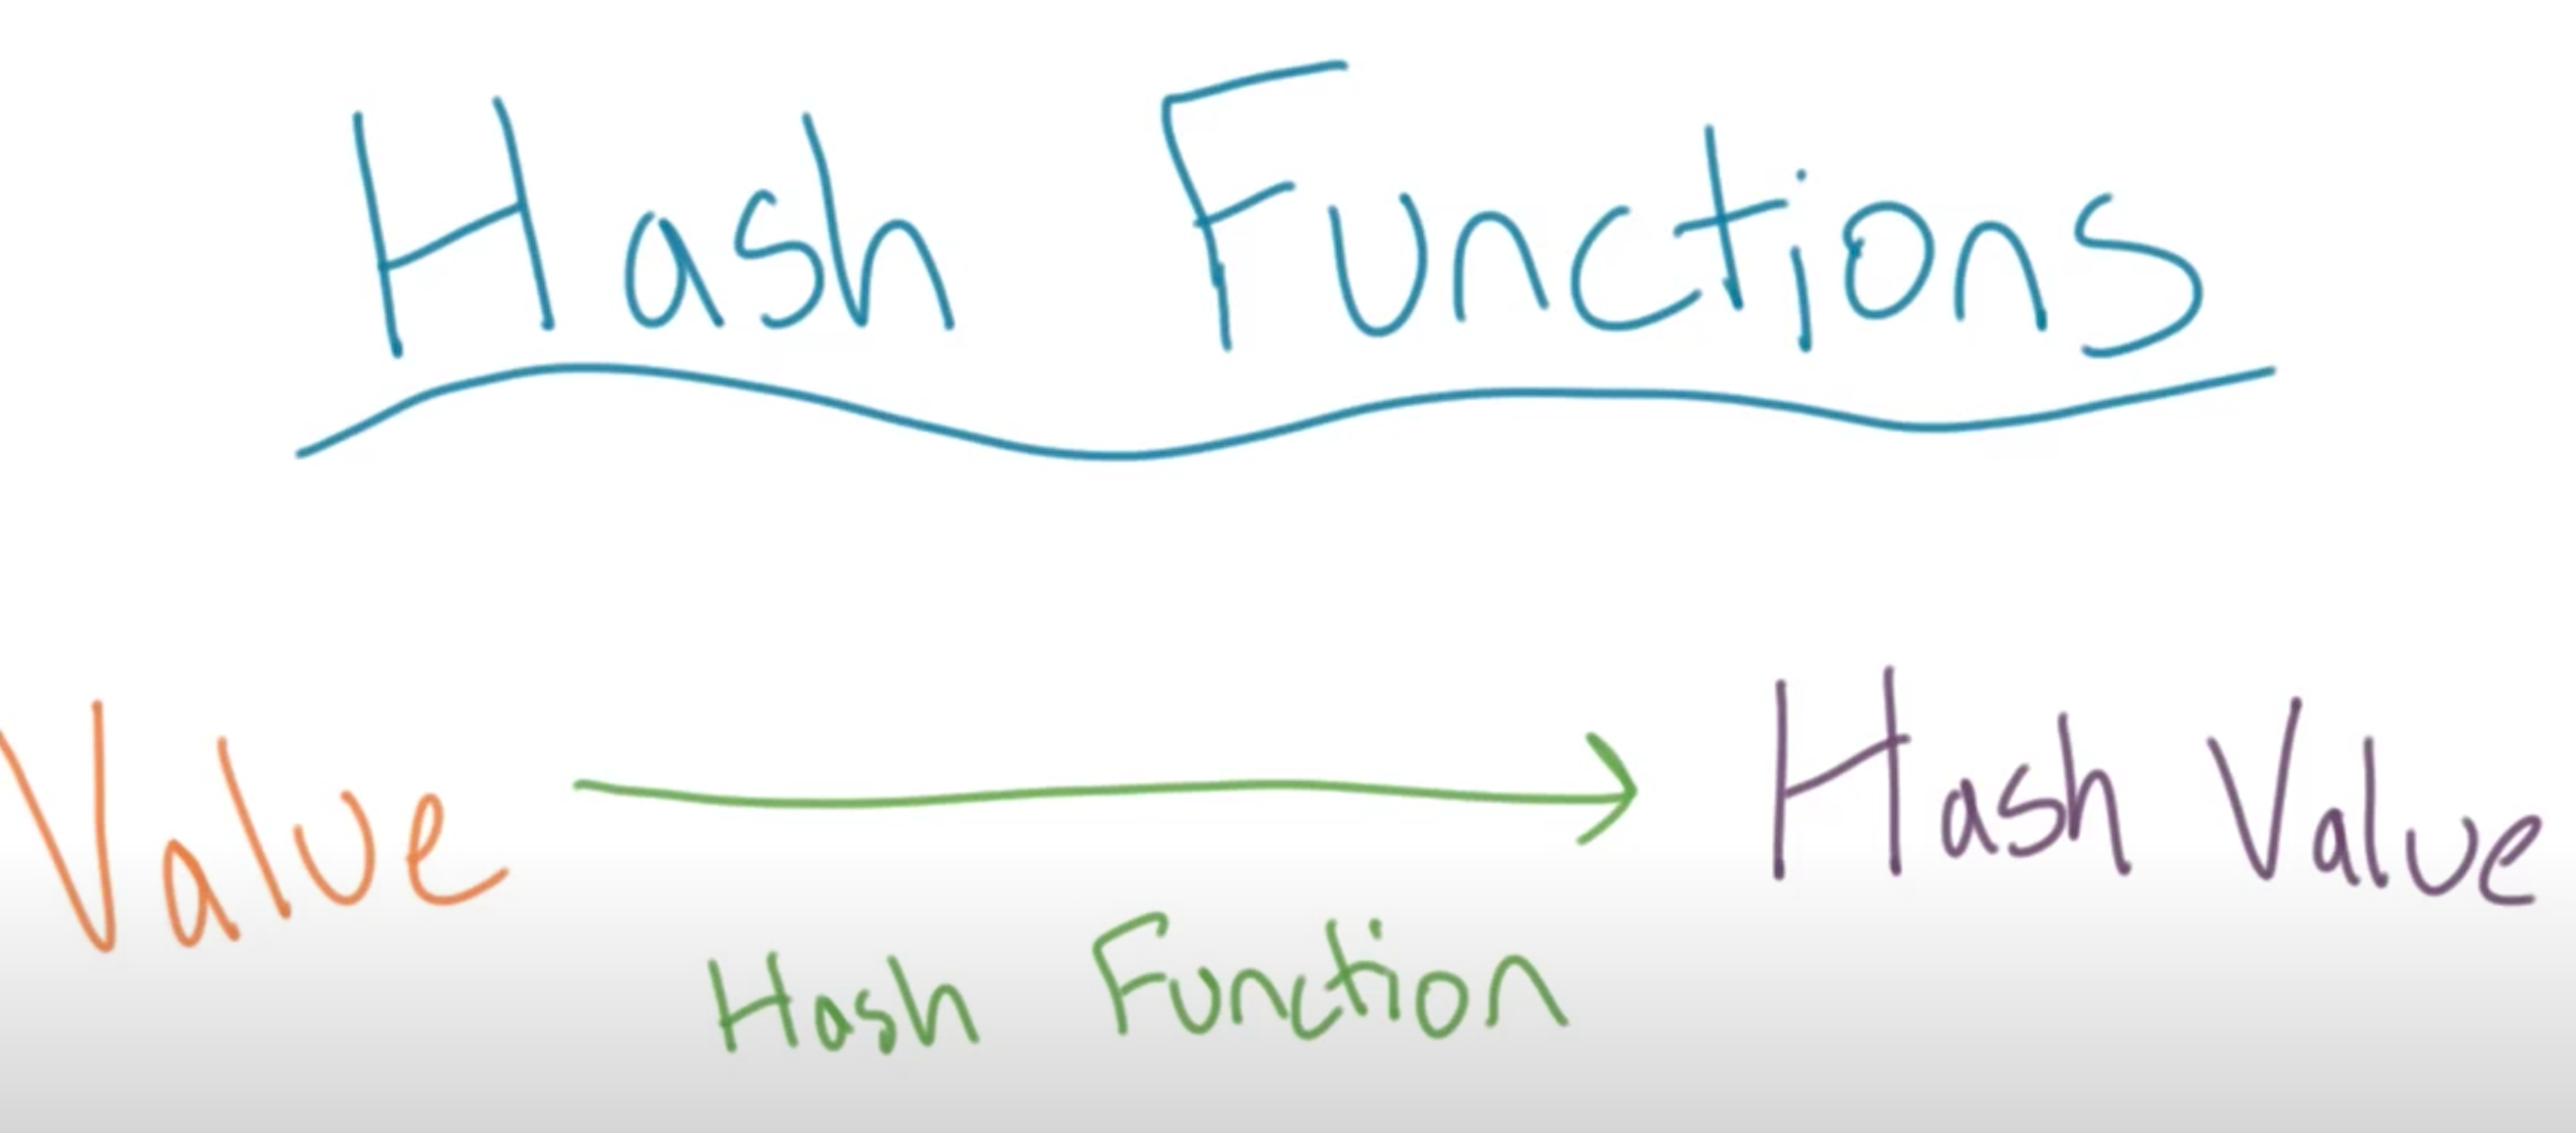 Hash Functions
Value Hash Value
Hash Function